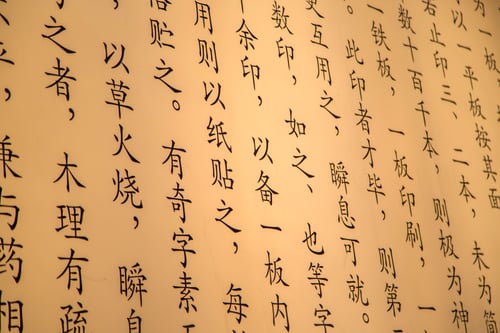 为一板
以一平板按其面
若止印三、二本，未为
数十百千本，则极为神
铁板，一板印刷，一
。此印者才毕，则第
更互用之，瞬息可就。
数印，如之、也等字
十余印，以备一板内
用则以纸贴之，每
贮之。有奇字素
，以草火烧，瞬息
之者，木理有疏
平，兼与药相